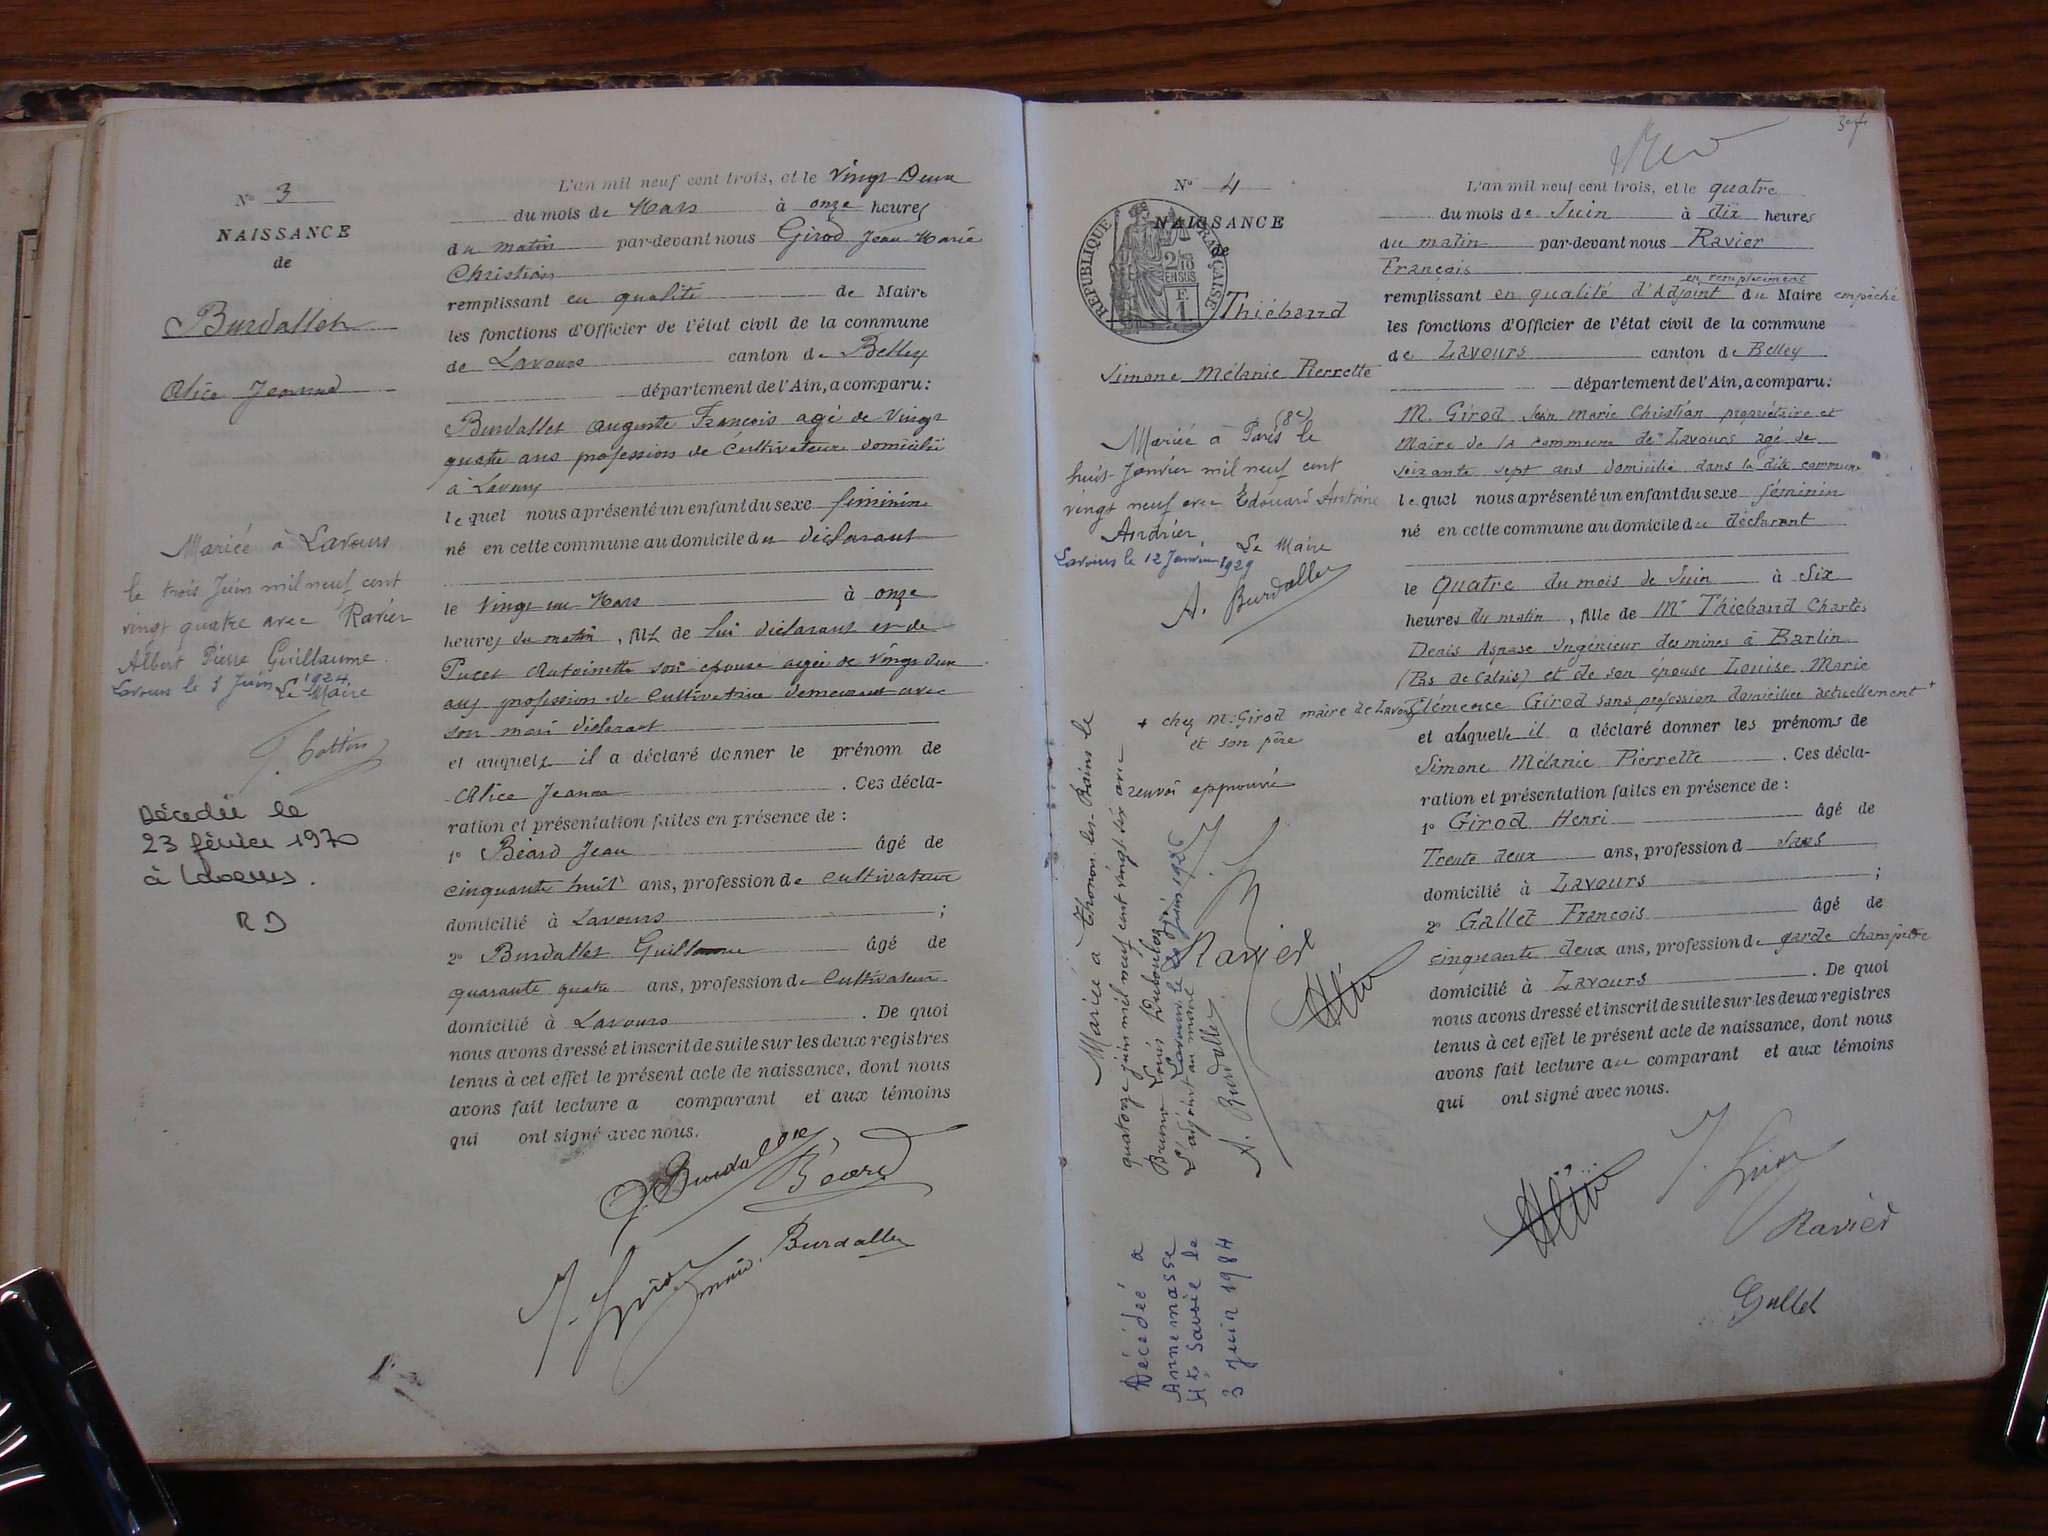 N° 3
NAISSANCE
de
Burdallet
Alice Jeanne
Mariée à Lavours
le trois Juin mil neuf cent
vingt quatre avec Ravier
Albert Pierre Guillaume.
Lavours le 3 Juin 1924
Le Maire
Décedée le
23 février 1970
à Lavours.
RD
L'an mil neuf cent trois, et le Vingt Deux
du mois de Mars à onze heures
du matin par-devant nous Girod Jean Marie
Christian
remplissant en qualité de Maire
les fonctions d'Officier de l'état civil de la commune
de Lavours canton de Belley
département de l'Ain, a comparu:
Burdallet Auguste François agé de Vingt
quatre ans profession de Cultivateur domicilié
à Lavours
lequel nous a présenté un enfant du sexe féminin
né en cette commune au domicile du déclarant
le Vingt un Mars à onze
heures du matin, fill de lui déclarant et de
Pucet Antoinette son épouse agée de Vingt deux
ans profession de Cultivatrice demeurant avec
son mari déclarant
et auquel il a déclaré donner le prénom de
Alice Jeanne. Ces décla-
ration et présentation faites en présence de :
1° Béard Jean âgé de
cinquante huit ans, profession de cultivateur
domicilié à Lavours ;
2° Burdallet Guillaume âgé de
quarante quatre ans, profession de Cultivateur
domicilié à Lavours. De quoi
nous avons dressé et inscrit de suite sur les deux registres
tenus à cet effet le présent acte de naissance, dont nous
avons fait lecture a comparant et aux témoins
qui ont signé avec nous.
Burdallet
Béard
J. Girod
maire
Burdallet
N° 4
NAISSANCE
de
RÉPUBLIQUE FRANÇAISE
Thiébaud
Simone Mélanie Pierrette
Mariée à Paris (8e) le
huit Janvier mil neuf cent
vingt neuf avec Edouard Antoine
Andrier
Lavours le 12 Janvier 1929
Le Maire
A. Burdallet
+ chez M. Girod maire de Lavours
et son père
renvoi approuvé
J. G.
Ravier
Mariée à Thonon-les-Bains le
quatorze juin mil neuf cent vingt six avec
Bruno Louis Duboulog
Lavours le 20 Juin 1926
L'adjoint au maire
A. Burdallet
Décédée à
Annemasse
Hte Savoie le
3 juin 1984
L'an mil neuf cent trois, et le quatre
du mois de Juin à dix heures
du matin par-devant nous Ravier
François
en remplacement
remplissant en qualité d'Adjoint du Maire empêché
les fonctions d'Officier de l'état civil de la commune
de Lavours canton de Belley
département de l'Ain, a comparu:
M. Girod Jean Marie Christian propriétaire et
Maire de la commune de Lavours agé de
soixante sept ans domicilié dans la dite commune
lequel nous a présenté un enfant du sexe féminin
né en cette commune au domicile du déclarant
le Quatre du mois de Juin à Six
heures du matin, fille de Mr Thiébaud Charles
Denis Aspase Ingénieur des mines à Barlin
(Pas de Calais) et de son épouse Louise Marie
Clémence Girod sans profession domiciliée actuellement +
et auquel il a déclaré donner les prénoms de
Simone Mélanie Pierrette. Ces décla-
ration et présentation faites en présence de :
1° Girod Henri âgé de
Trente deux ans, profession d sans
domicilié à Lavours ;
2° Gallet François âgé de
cinquante deux ans, profession de garde champêtre
domicilié à Lavours. De quoi
nous avons dressé et inscrit de suite sur les deux registres
tenus à cet effet le présent acte de naissance, dont nous
avons fait lecture au comparant et aux témoins
qui ont signé avec nous.
J. Girod
Ravier
Gallet